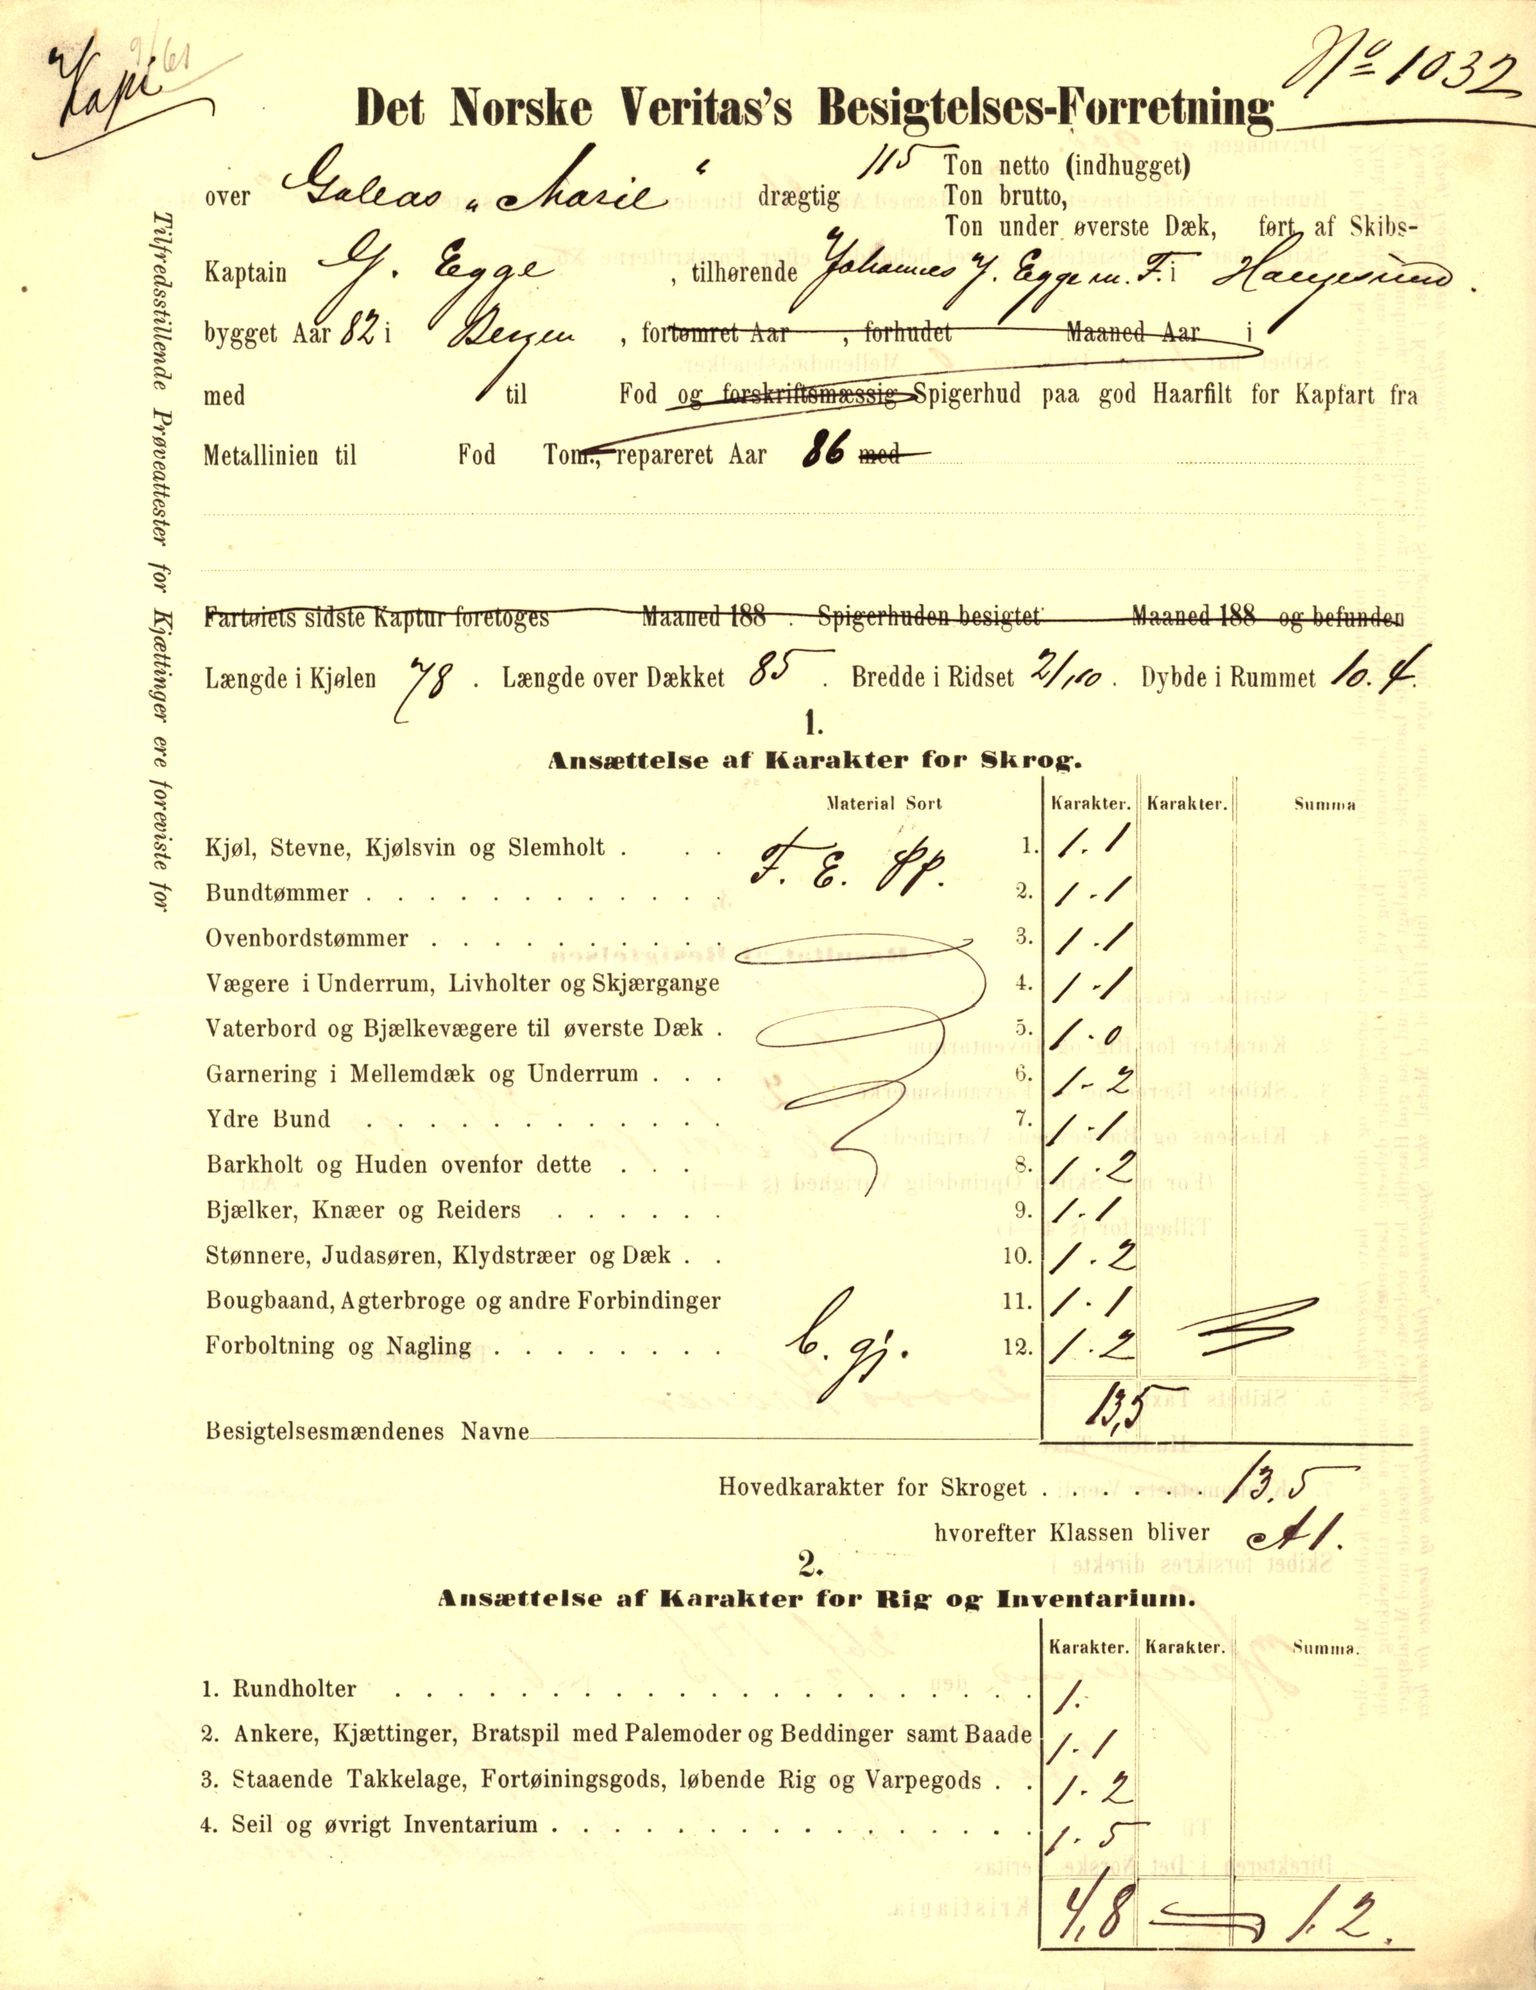 Kapi
9/61
No 1032
Det Norske Veritas's Besigtelses-Forretning
over Galeas „Marie“ drægtig 115 Ton netto (indhugget)
Ton brutto,
Ton under øverste Dæk, ført af Skibs-
Kaptain G. Egge, tilhørende Johannes J. Egge m. F. i Haugesund.
bygget Aar 82 i Bergen, fortømret Aar , forhudet Maaned Aar i
med til Fod og forskriftsmæssig Spigerhud paa god Haarfilt for Kapfart fra
Metallinien til Fod Tom., repareret Aar 86 med
Fartøiets sidste Kaptur foretoges Maaned 188 . Spigerhuden besigtet Maaned 188 og befunden
Længde i Kjølen 78 . Længde over Dækket 85 . Bredde i Ridset 21,10 . Dybde i Rummet 10.4.
1.
Ansættelse af Karakter for Skrog.
Material Sort Karakter. Karakter. Summa
Kjøl, Stevne, Kjølsvin og Slemholt . . . F. E. PP. 1. 1.1
Bundtømmer . . . . . . . . . . . . 2. 1.1
Ovenbordstømmer . . . . . . . . . . 3. 1.1
Vægere i Underrum, Livholter og Skjærgange 4. 1.1
Vaterbord og Bjælkevægere til øverste Dæk . 5. 1.0
Garnering i Mellemdæk og Underrum . . . 6. 1.2
Ydre Bund . . . . . . . . . . . . . 7. 1.1
Barkholt og Huden ovenfor dette . . . 8. 1.2
Bjælker, Knæer og Reiders . . . . . . 9. 1.1
Stønnere, Judasøren, Klydstræer og Dæk . . 10. 1.2
Bougbaand, Agterbroge og andre Forbindinger 11. 1.1
Forboltning og Nagling . . . . . . . . C. gj. 12. 1.2
13,5
Besigtelsesmændenes Navne
Hovedkarakter for Skroget . . . . . . 13.5
hvorefter Klassen bliver A1.
2.
Ansættelse af Karakter for Rig og Inventarium.
Karakter. Karakter. Summa.
1. Rundholter . . . . . . . . . . . . . . . . 1.
2. Ankere, Kjættinger, Bratspil med Palemoder og Beddinger samt Baade 1.1
3. Staaende Takkelage, Fortøiningsgods, løbende Rig og Varpegods . . 1.2
4. Seil og øvrigt Inventarium . . . . . . . . . . . . 1.5
4,8 1.2.
Tilfredsstillende Prøveattester for Kjættinger ere foreviste for